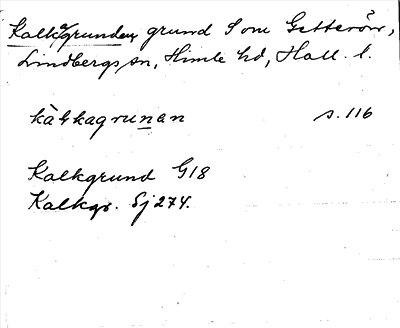 Kalkagrunden, grund S om Getterön,
Lindbergs sn, Himle hd, Hall. l.
kàłkagrunan s. 116
Kalkgrund G18
Kalkgr. Sj 274.